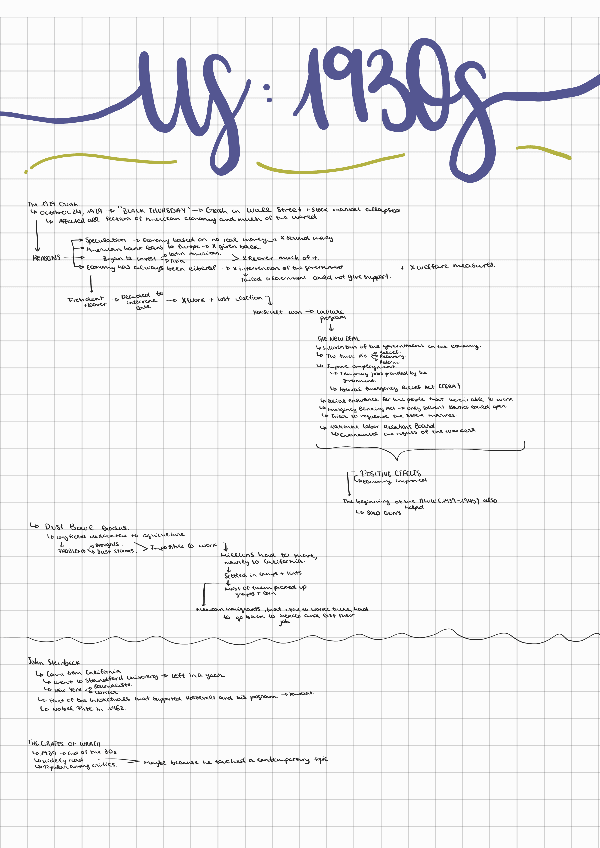 US: 1930s
The 1929 Crash
October 24, 1929 → "BLACK THURSDAY" → Crash in Wall Street + stock market collapses
Affected all section of American economy and much of the world
REASONS
Speculation → Economy based on no real money → X second money
American banks loans to Europe → X given back
Began to invest
Latin American
X Recover much of it
Economy has always been liberal → X intervention of the government
+ X welfare measures.
failed a government could not give support.
President Hoover → Decided to intervene late → X Work + lost election
Roosevelt won → welfare program
THE NEW DEAL
Intervention of the government in the economy.
The three Rs
Relief.
Recovery
Reform
Improve employment
Temporary jobs provided by the government.
Federal Emergency Relief Act (FERA)
Social insurance for the people that were able to work
Emergency Banking Act → only solvent banks could open
to regulate the stock market
National Labor Relations Board
Guaranteed the rights of the workers
POSITIVE EFFECTS
Economy improved
The beginning of the WWII (1939-1945) also helped
SOLD GUNS
Dust Bowl Exodus.
dedicated to agriculture
PROBLEMS
Droughts.
Dust storms.
Impossible to work
Millions had to move, mainly to California.
Settled in camps + tents
Most of them picked up grapes + corn
Mexican immigrants, had to go back to Mexico and lost their job
John Steinbeck
Born from California
Went to Standford University → left in a year
New York
Journalist.
Part of the intellectuals that supported Roosevelt and his program
Nobel Prize in 1962
THE GRAPES OF WRATH
1939 → End of the 30s
Widely read
Popular among critics.
Maybe because he touched a contemporary topic